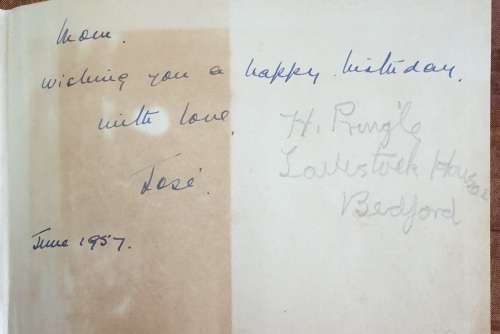 Mom.
wishing you a happy birthday.
with love,
José.
June 1957.
H. Pringle
Tavistock House
Bedford